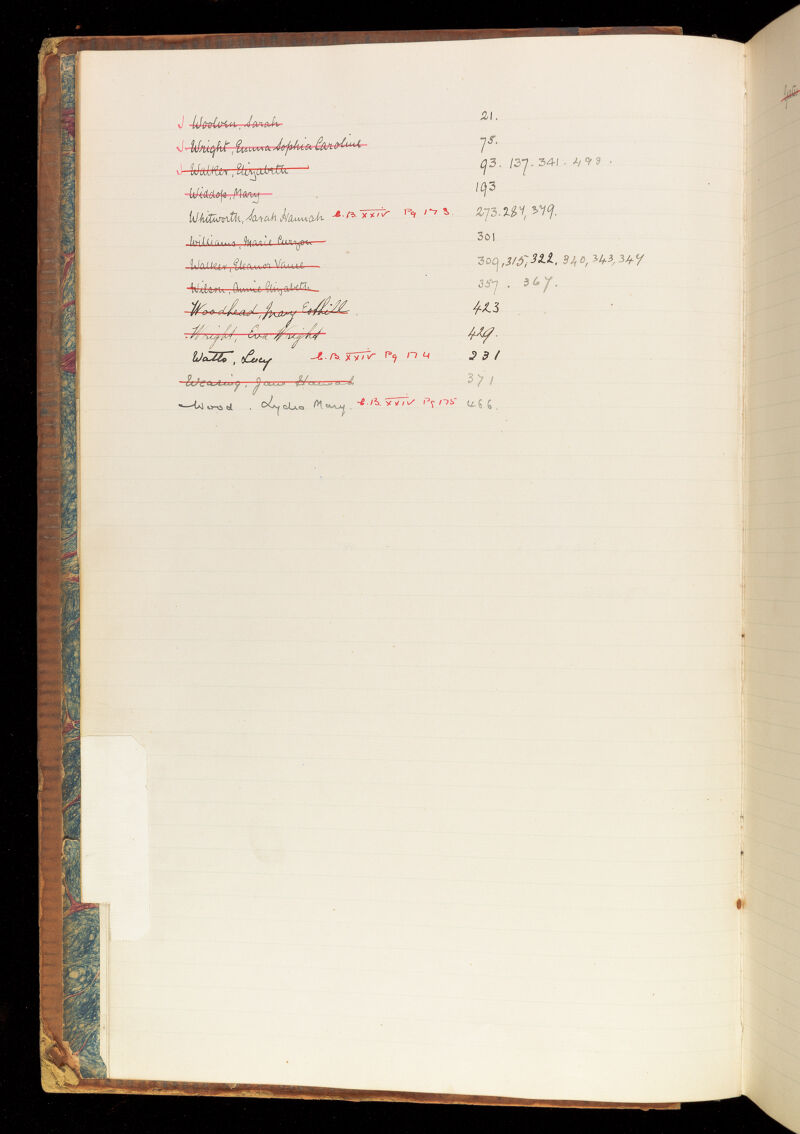 Woolven, Sarah 21.
Wright, Emma Sophia Caroline 78.
Walker, Elizabeth 93. 137. 341. 499.
Widdop, Mary 193
Whitworth, Sarah Hannah C.B. XXIV Pg 173 273. 287, 379.
Williams, Marie Curzon 301
Walker, Eleanor Vance 309, 315, 322, 340, 343, 347
Wilson, Annie Elizabeth 357. 367.
Woodhead, Mary 423
Wright, Eva Wright 429.
Watts, Lucy C.B. XXIV Pg 174 231
Wearing, Jane Hannah 371
Wood. Lydia Mary. C.B. XXIV Pg 175 466.